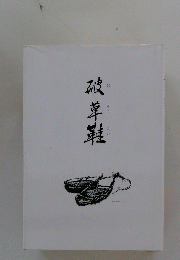 破草鞋